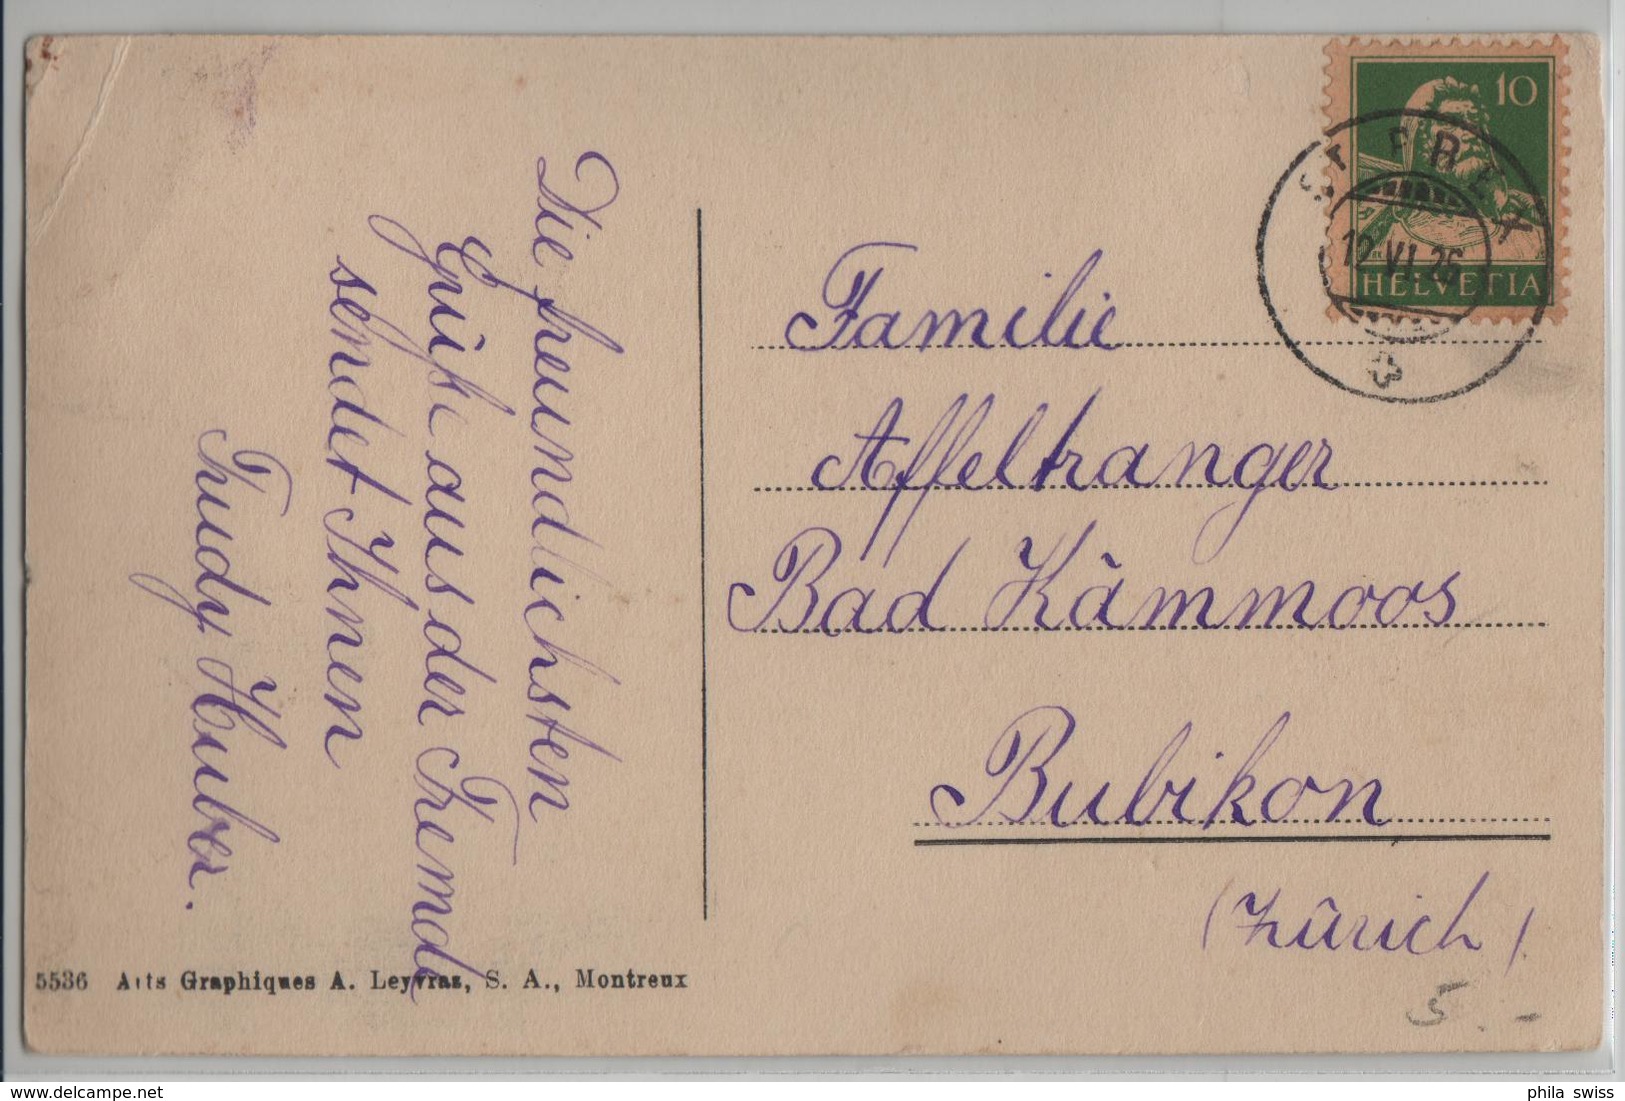 Die freundlichsten
Grüße aus der Fremde
sendet Ihnen
Trudy Huber.
Familie
Affeltranger
Bad Kämmoos
Bubikon
(Zürich)
5.-
10
HELVETIA
ST. PREX
12.VI.26
5536 Arts Graphiques A. Leyvraz, S. A., Montreux
delcampe.net
phila_swiss